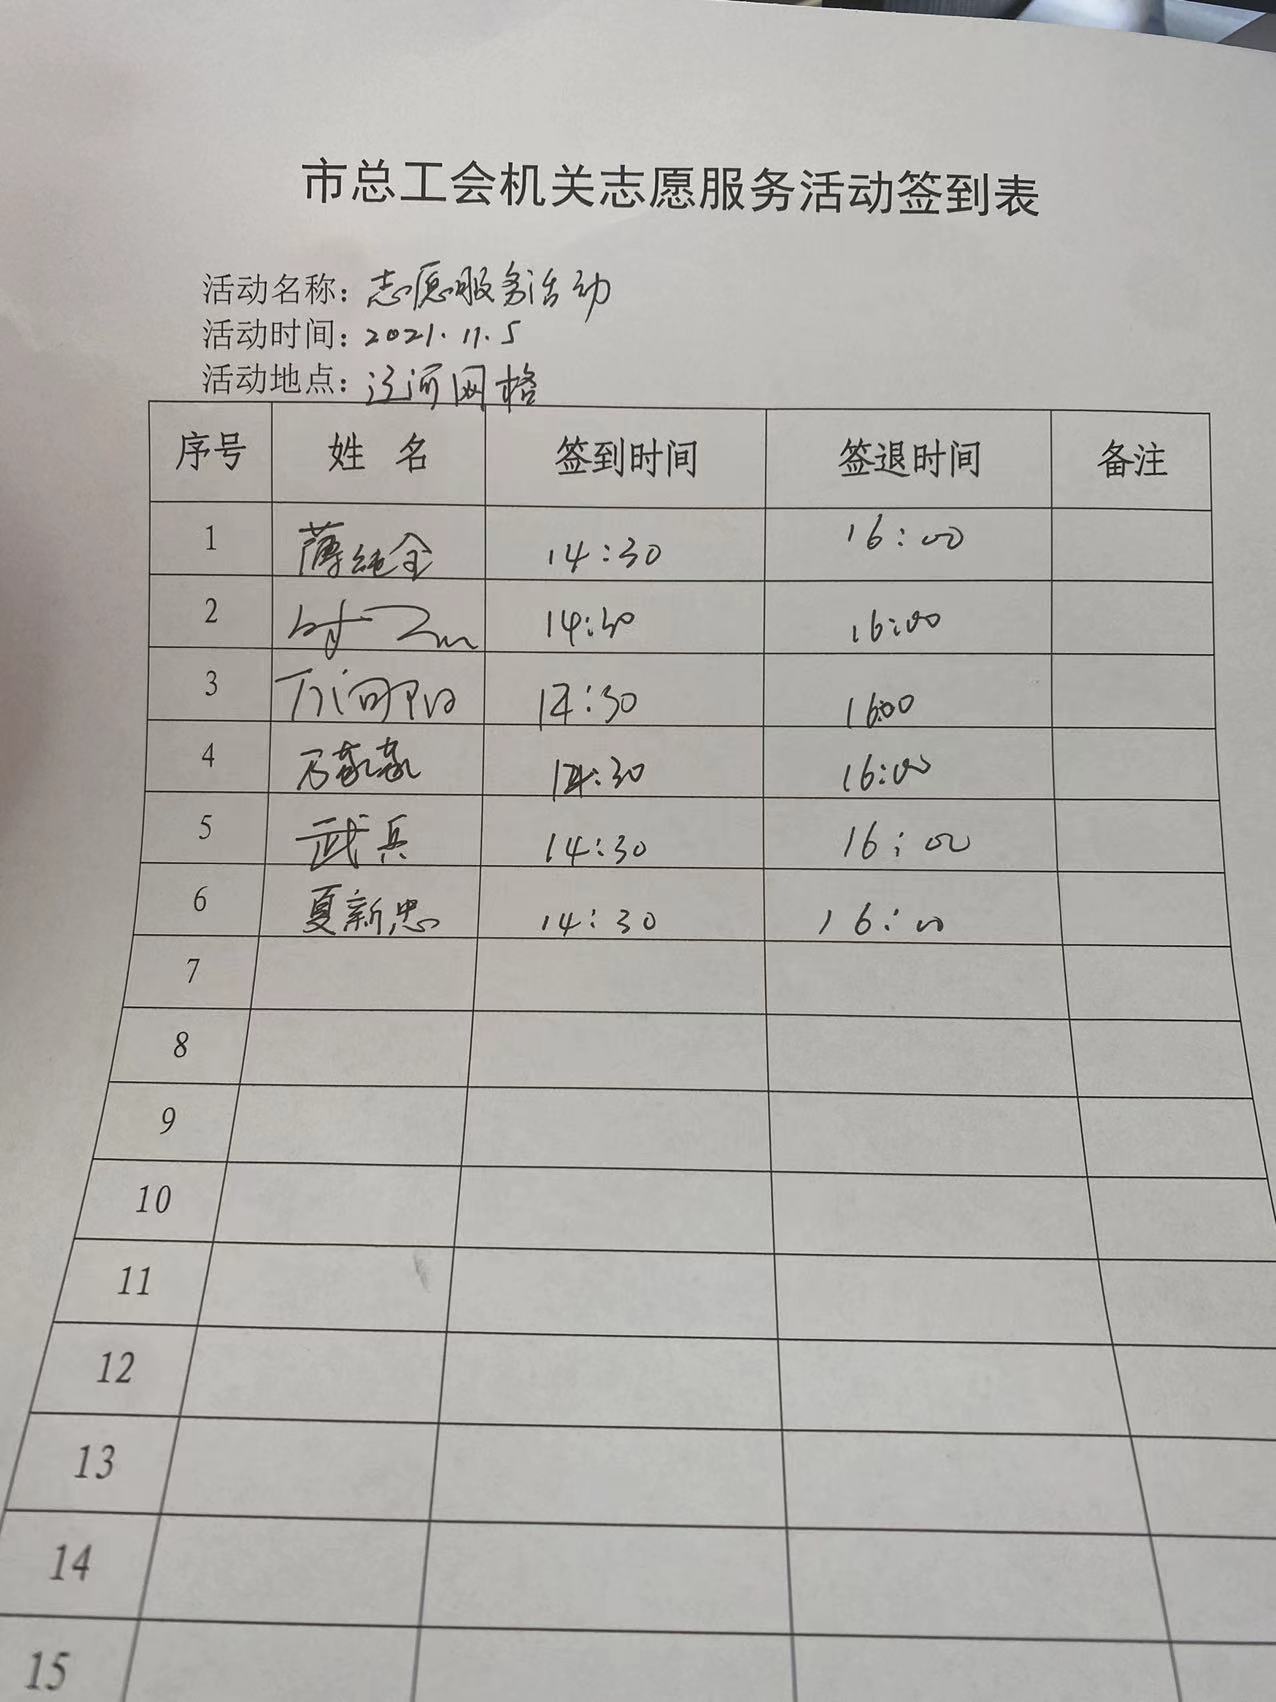 市总工会机关志愿服务活动签到表
活动名称：志愿服务活动
活动时间：2021.11.5
活动地点：辽河网格
序号 姓名 签到时间 签退时间 备注
1 薄纯金 14:30 16:00
2 14:30 16:00
3 14:30 16:00
4 14:30 16:00
5 武兵 14:30 16:00
6 夏新忠 14:30 16:00
7
8
9
10
11
12
13
14
15